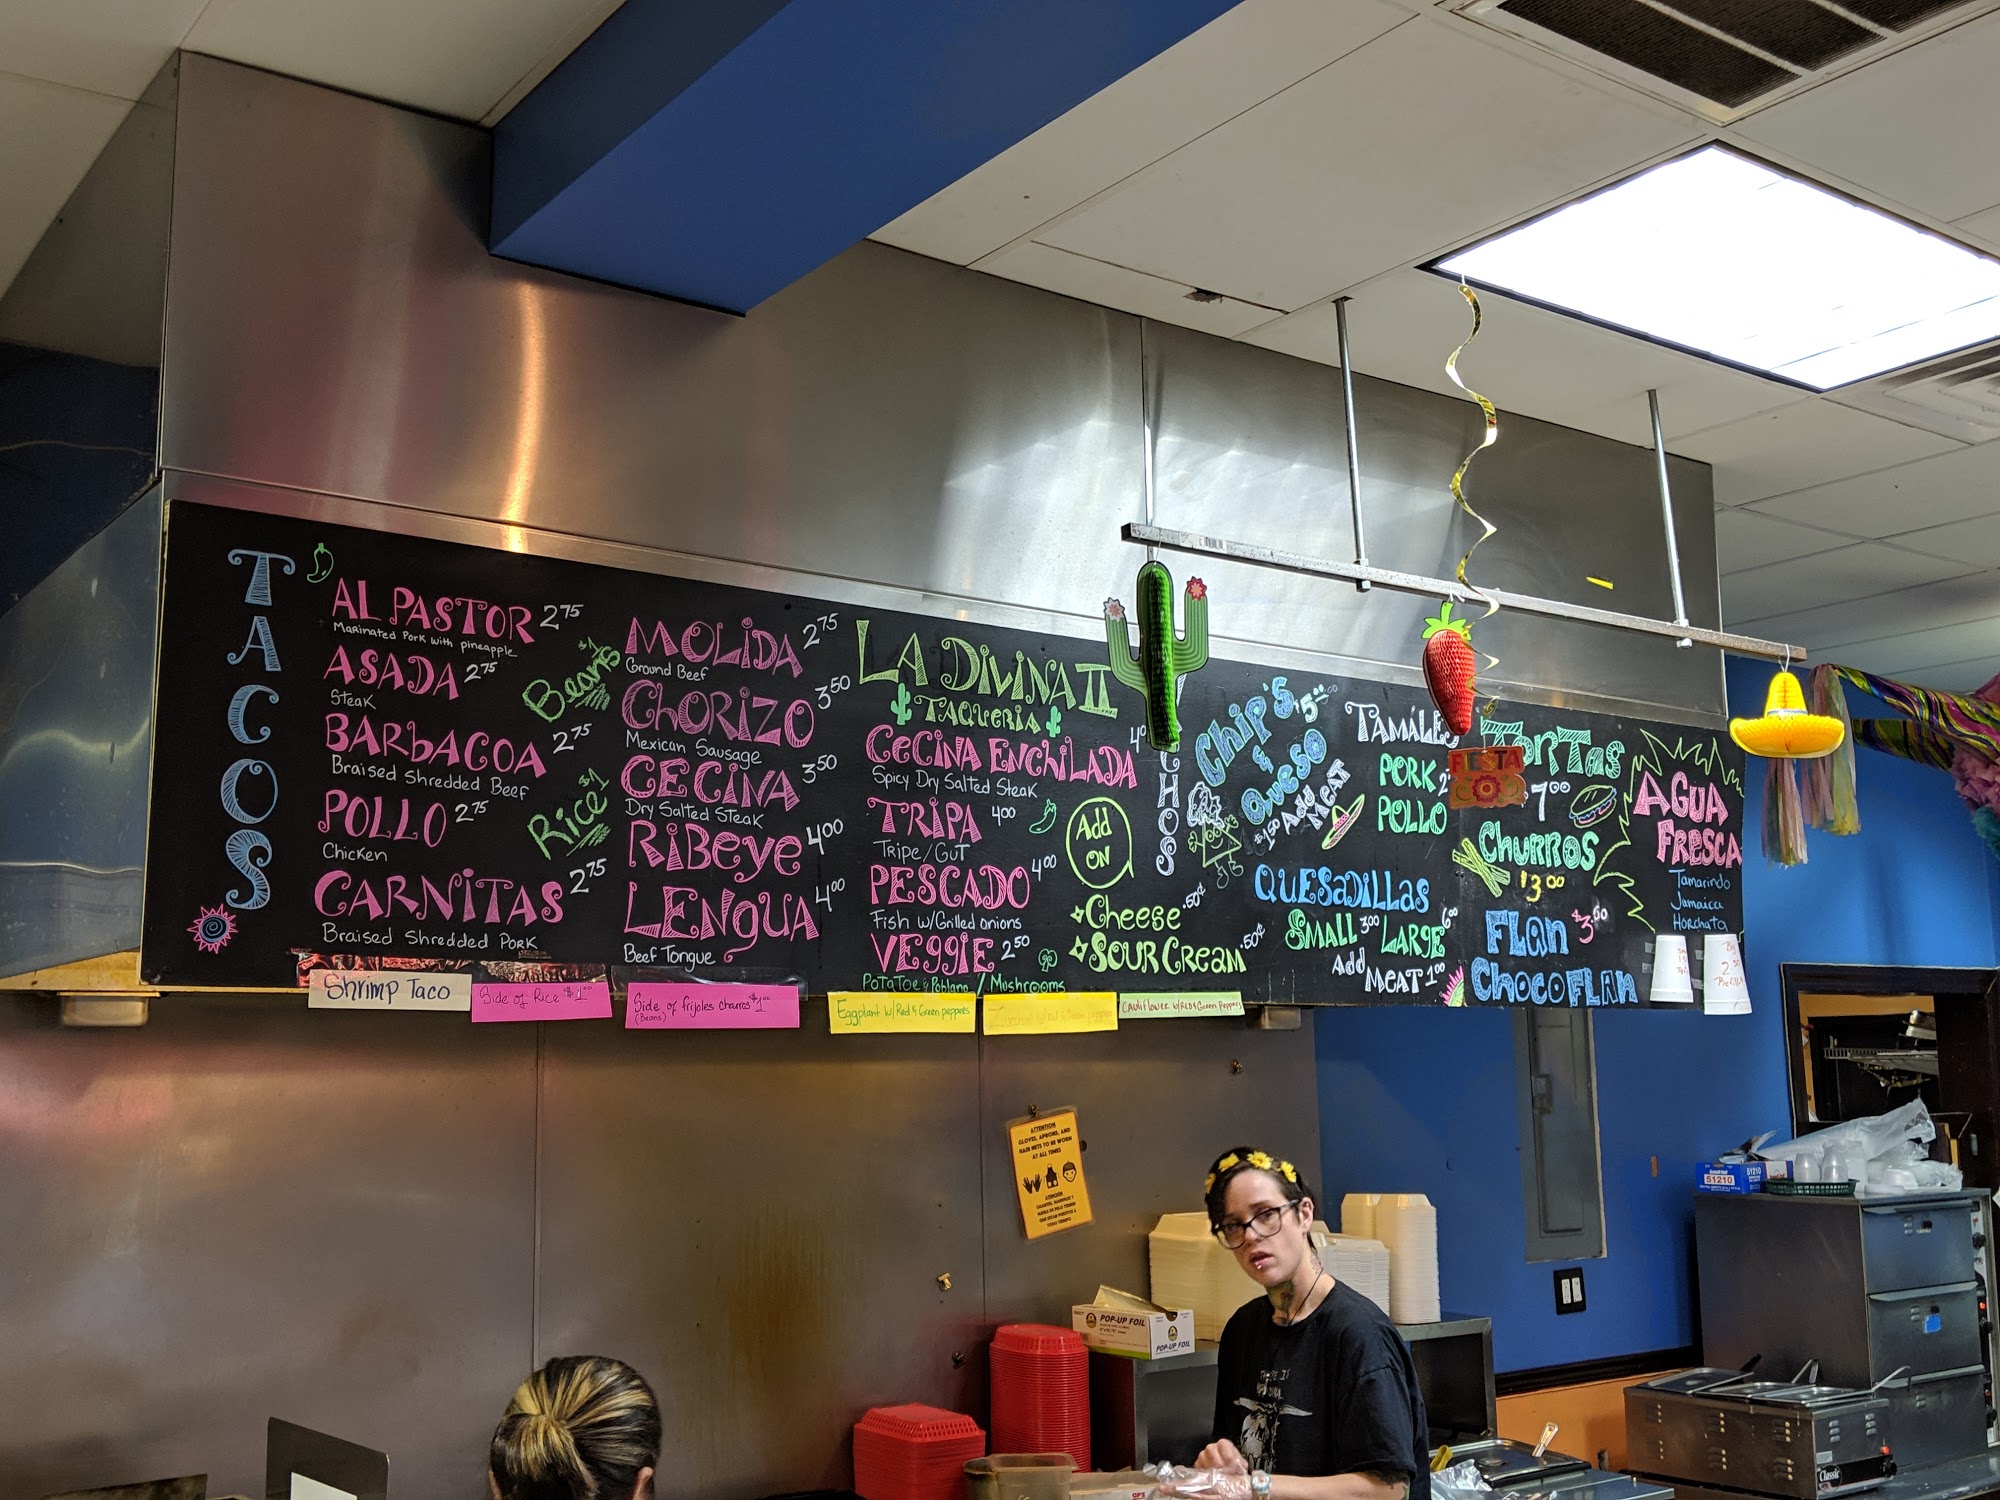 TACOS
AL PASTOR 2.75
Marinated Pork with pineapple
ASADA 2.75
Steak
BARBACOA 2.75
Braised Shredded Beef
POLLO 2.75
Chicken
CARNITAS 2.75
Braised Shredded Pork
Beans $1
Rice $1
MOLIDA 2.75
Ground Beef
CHORIZO 3.50
Mexican Sausage
CECINA 3.50
Dry Salted Steak
RIBEYE 4.00
LENGUA 4.00
Beef Tongue
LA DIVINA II
TAQUERIA
CECINA ENCHILADA
Spicy Dry Salted Steak
TRIPA 4.00
Tripe/Gut
PESCADO 4.00
Fish w/Grilled onions
VEGGIE 2.50
PoTaToe & Poblano / Mushrooms
Add
ON
Cheese .50¢
SOUR CREAM .50¢
CHOS
Chip's $5.00
& Queso
$1.50 Add
MEAT
TAMÁLES
PORK
POLLO
QUESADILLAS
SMALL 3.00 LARGE 6.00
Add MEAT 1.00
TORTAS
$7.00
Churros
$3.00
FLAN $3.50
CHOCOFLAN
AGUA
FRESCA
Tamarindo
Jamaica
Horchata
FIESTA
Shrimp Taco
Side of Rice $1.00
Side of frijoles charros $1.00
(Beans)
Eggplant w/Red & Green peppers
w/Red & Green peppers
Cauliflower w/Red & Green Peppers
ATTENTION
GLOVES, APRONS, AND
HAIR NETS TO BE WORN
AT ALL TIMES
ATENCION
POP-UP FOIL
POP-UP FOIL
51210
51210
Classic